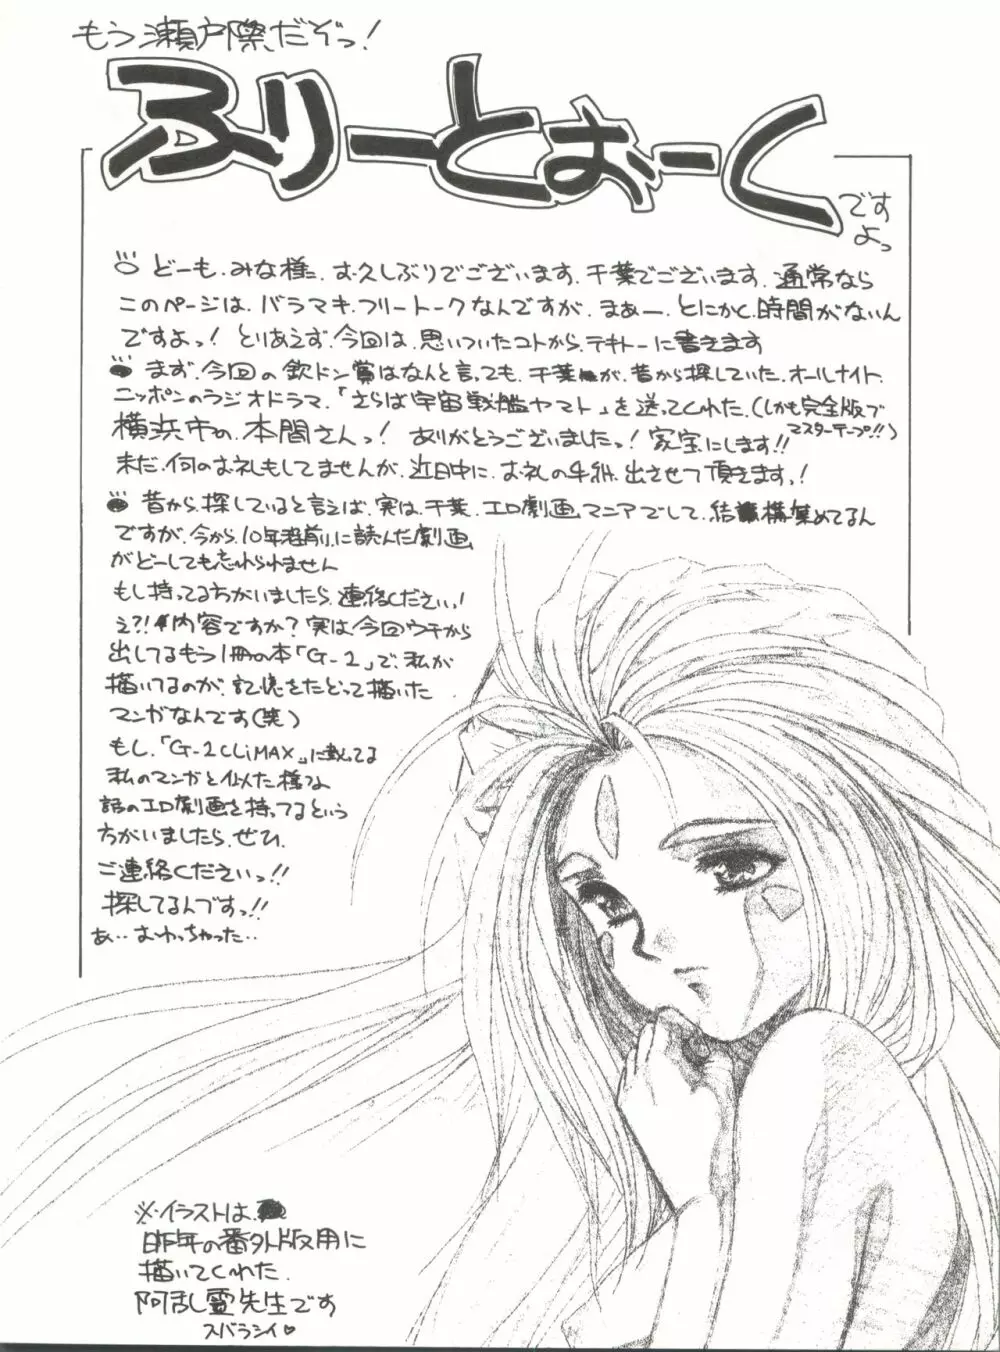 もう瀬戸際だぞっ!
ふりーとぉーく
です
よっ
どーも、みな様、お久しぶりでございます、千葉でございます、通常なら
このページは、バラマキ、フリートークなんですが、まぁー、とにかく、時間がないん
ですよっ! とりあえず、今回は、思いついたコトから、テキトーに書きます
まず、今回の欽ドン賞はなんと言っても、千葉が、昔から探していた、オールナイト
ニッポンのラジオドラマ、「さらば宇宙戦艦ヤマト」を送ってくれた、(しかも完全版で
マスターテープ!!)
横浜市の、本間さんっ! ありがとうございましたっ! 家宝にします!!
未だ、何のお礼もしてませんが、近日中に、お礼の手紙、出させて頂きます!
昔から、探していると言えば、実は、千葉、エロ劇画マニアでして、結構集めてるん
ですが、今から、10年程前に読んだ劇画
がどーしても忘れられません
もし持ってる方がいましたら、連絡ください!
え?! 内容ですか? 実は今回ウチから
出してるもう1冊の本「G-2」で、私が
描いてるのが、記憶をたどって描いた
マンガなんです(笑)
もし、「G-2 CLiMAX」に載ってる
私のマンガと似た様な
話のエロ劇画を持ってるという
方がいましたら、ぜひ
ご連絡くださいっ!!
探してるんですっ!!
あ‥おわっちゃった‥
※イラストは、
昨年の番外版用に
描いてくれた、
阿乱霊先生です
スバラシイ♡